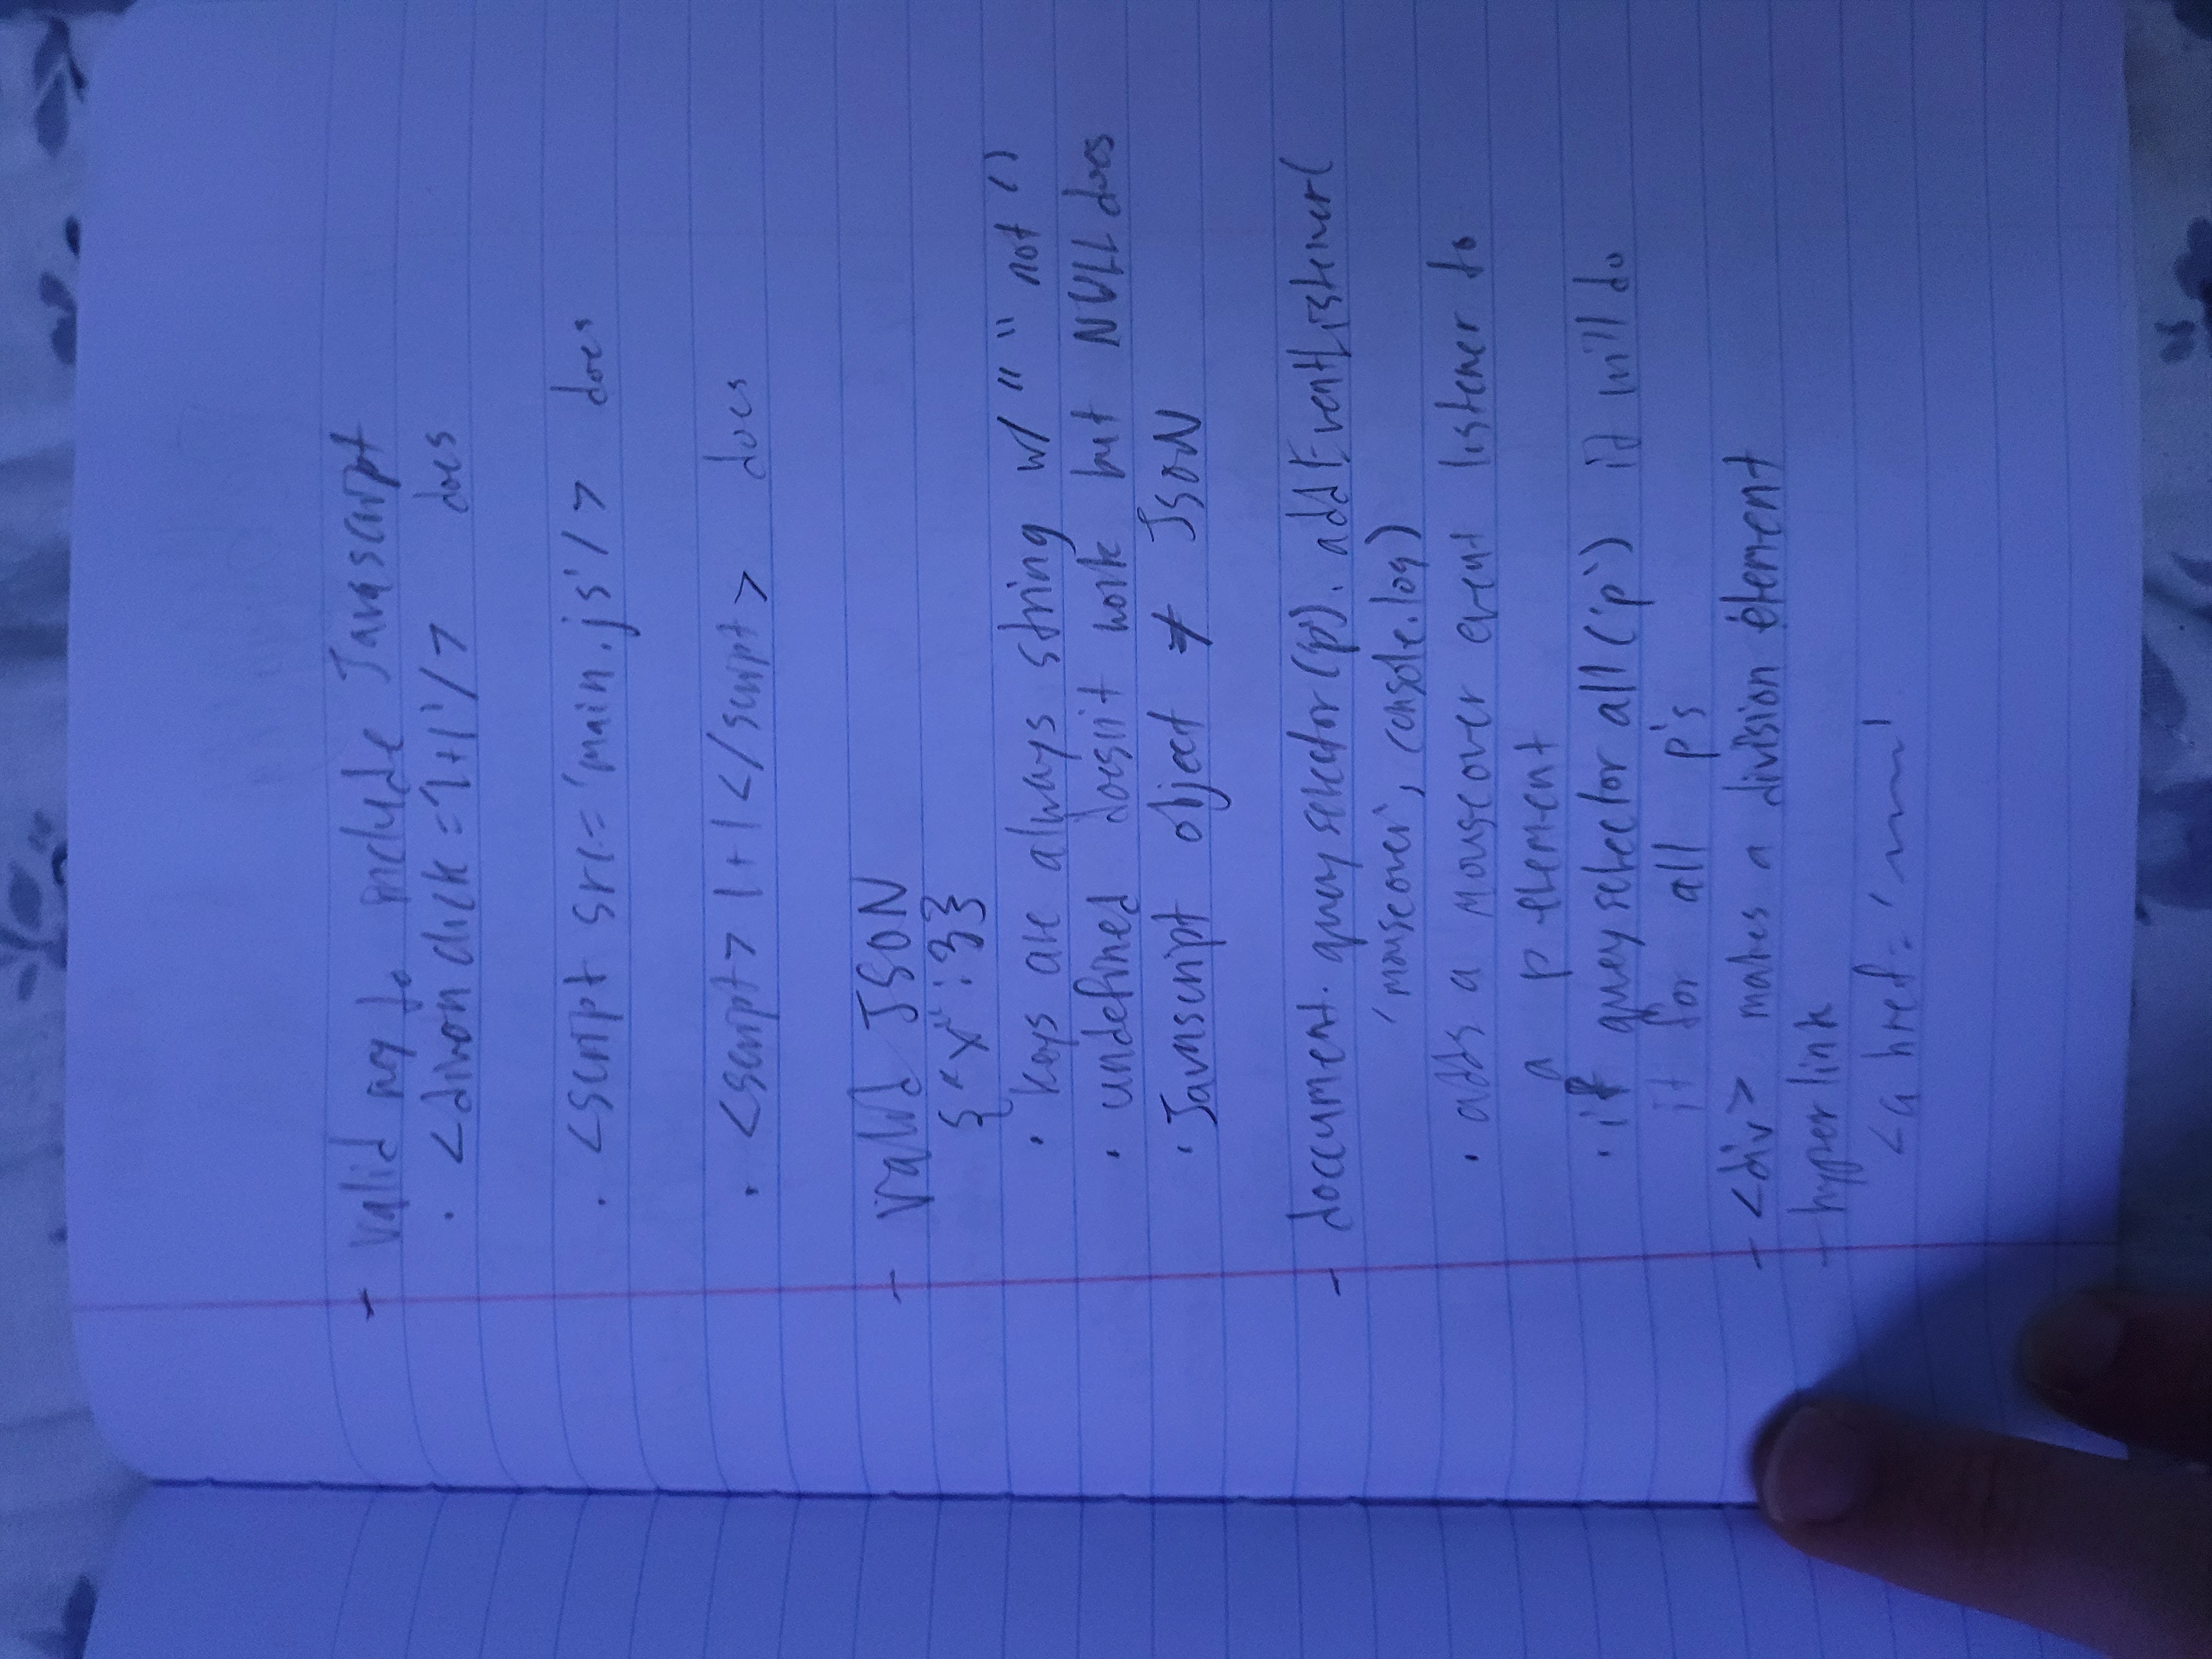 - valid way to include Javascript
· <div onclick='1+1'/> does
· <script src='main.js'/> does
· <script> 1+1 </script> does
- valid JSON
{"x":3}
· keys are always string w/ " " not ' '
· undefined doesn't work but NULL does
· Javascript object ≠ JSON
- doccument.queryselector('p').addEventListener(
'mouseover', console.log)
· adds a mouseover event listener to
a p element
· if queryselector all('p') it will do
it for all p's
- <div> makes a division element
- hyperlink
<a href='